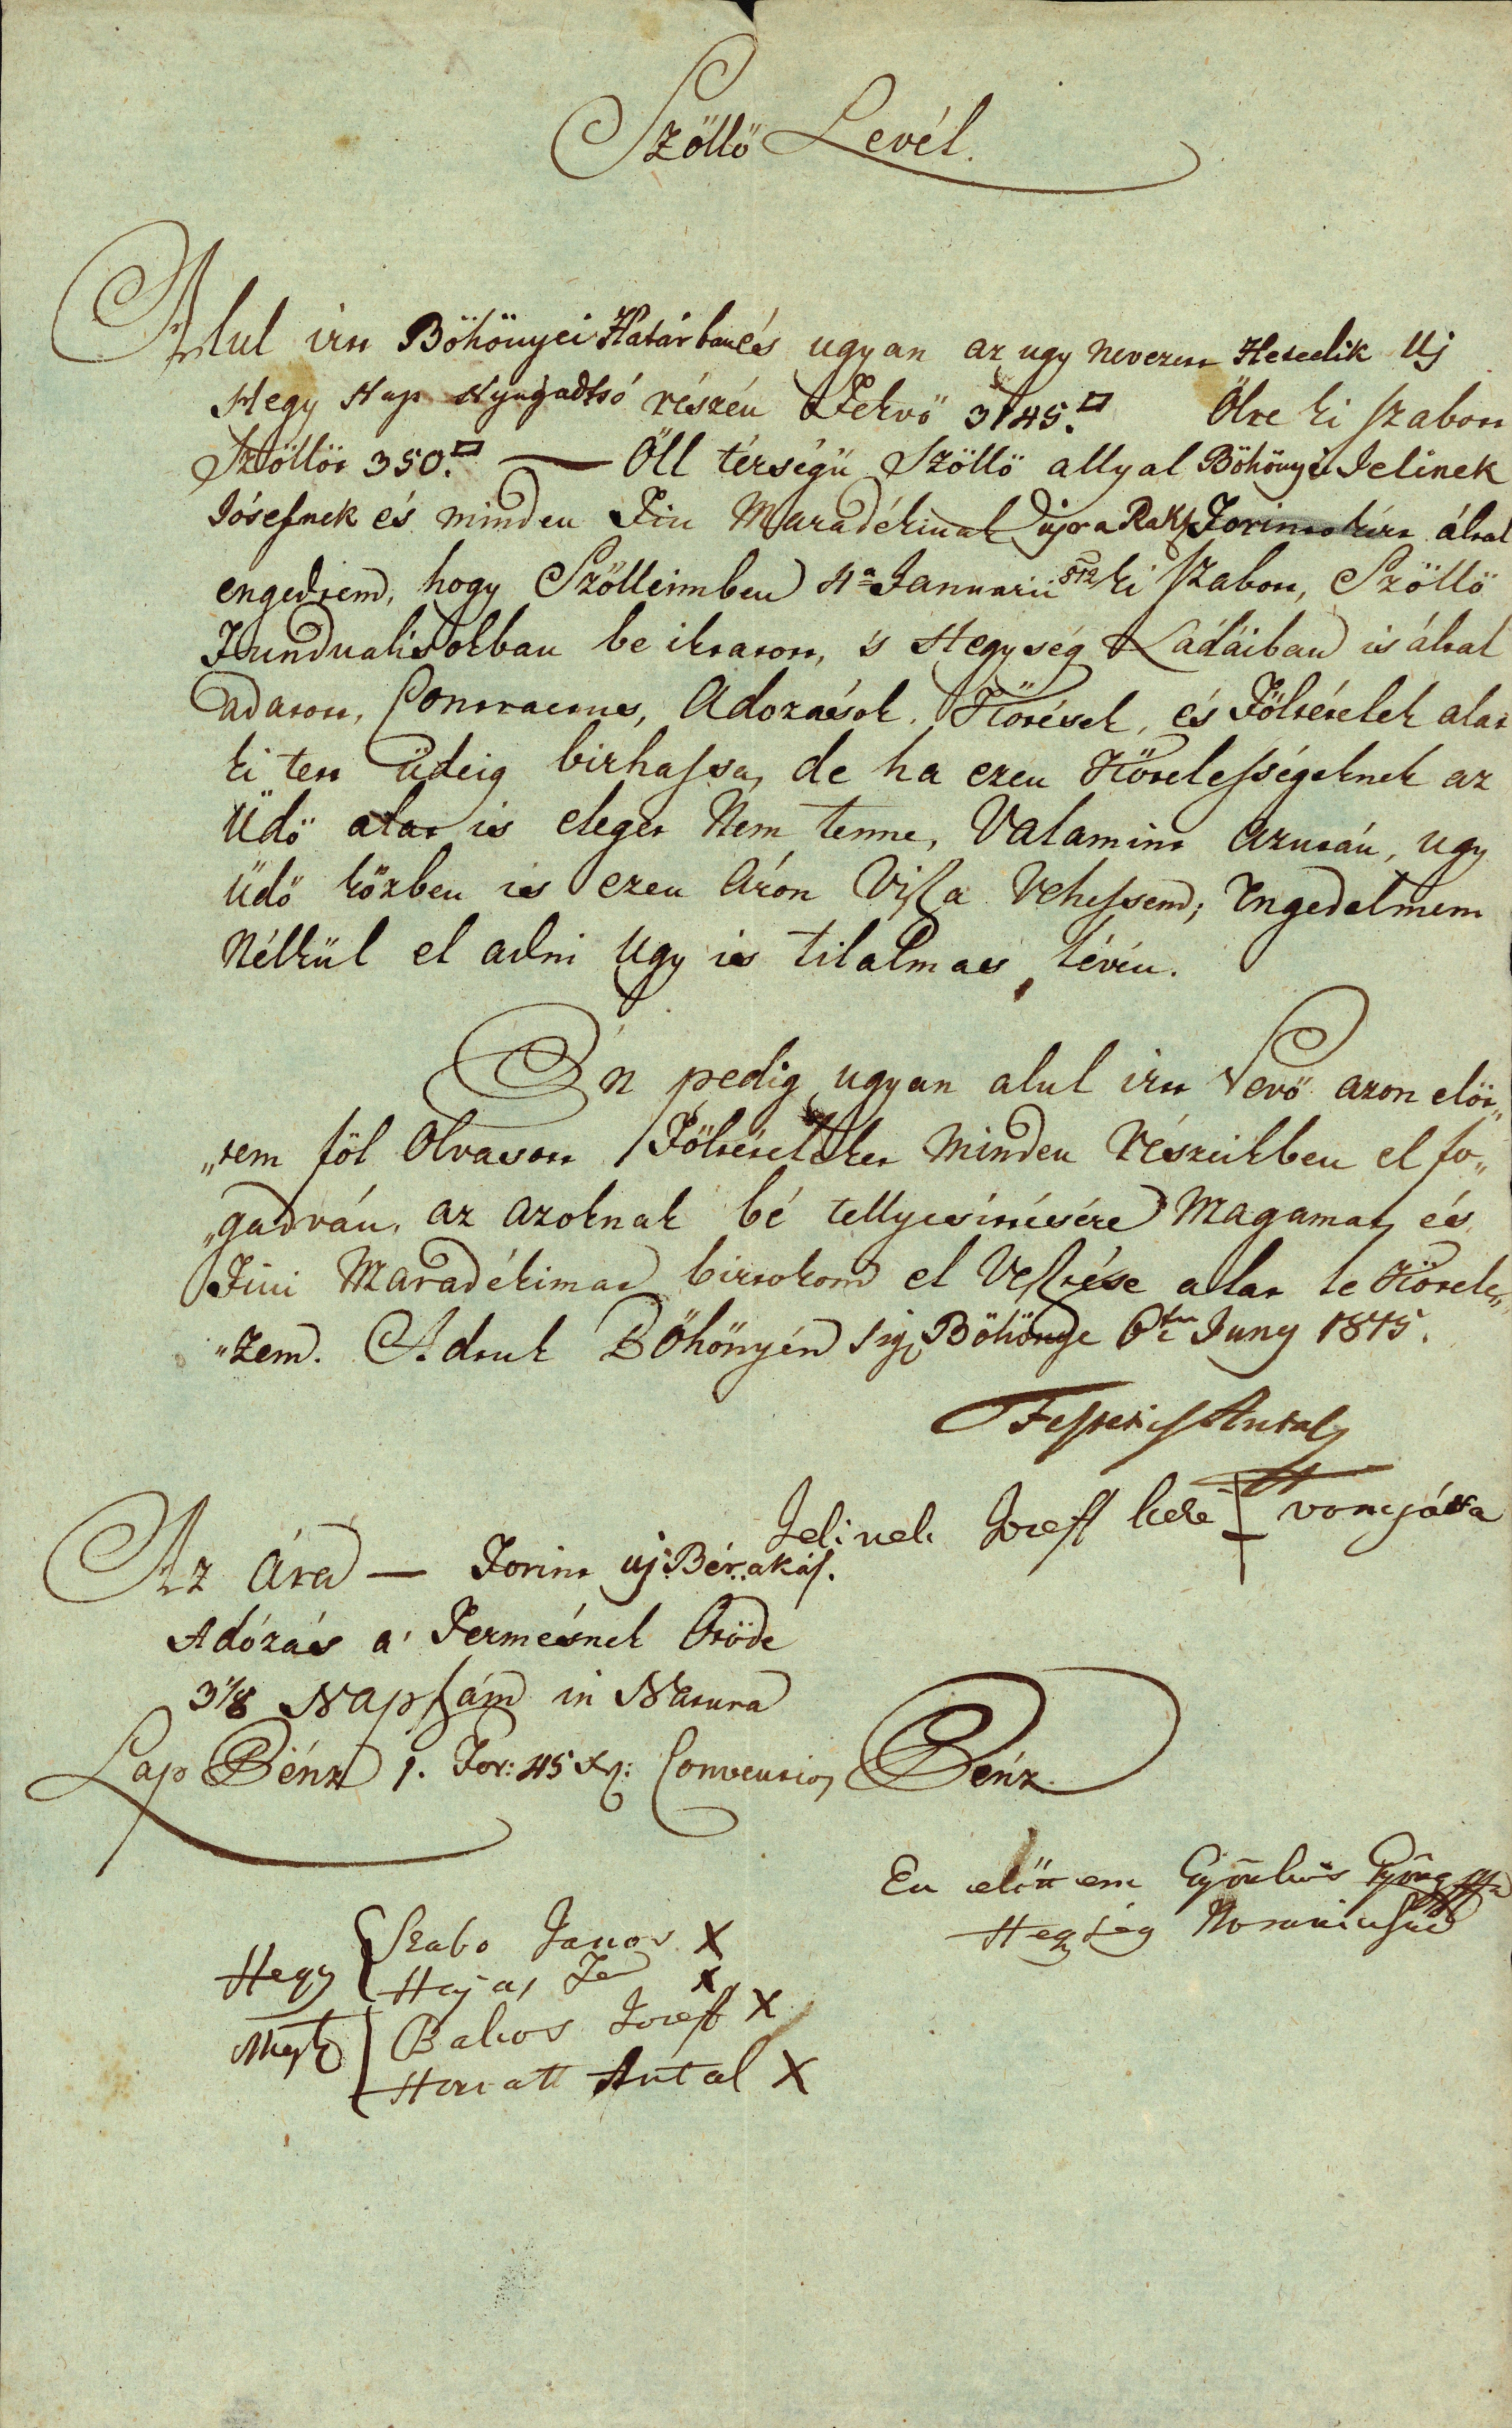 Szöllö Levél.
Alul irtt Böhönyei Határban és ugyan az ugy nevezett Hetedik Uj
Hegy Nap Nyugadtsó részén Fekvö 3145.□ Ölre ki szabott
Szöllöt 350.□ — Öll térségü Szöllö allyal Böhönyei Jelinek
Jósefnek és minden Fiu Maradékinak ujjra Rakás Forintokért által
engedtem, hogy Szölleimben 4a Januarii 812 ki szabott, Szöllö
Fundualisokban be iktatott, 's Hegység Ládáiban is által
adatott, Contractus, Adozások, Kötések, és Föltételek alat
ki tett üdeig birhassa, de ha ezen Kötelességeknek az
Üdö alat is eleget Nem tenne, Valamint azután, ugy
üdö közben is ezen Áron Vissza Vehessem; Engedelmem
Nélkül el adni Ugy is tilalmas lévén.
Én pedig ugyan alul irtt Vevö azon elöt„
„tem föl Olvasott Föltételeket Minden Részeikben el fo„
„gadván, az azoknak bé tellyesittésére Magamat, és
Fiui Maradékimat birtokom el Vesztése alat le Kötele„
„zem. Adtuk Böhönyén Sig. Böhönye 6ta Juny 1815.
Festetics Antal
Jelinek Josef keze + vonyássa
Az Ára — Forint uj Bér. akás.
Adózás a' Termésnek Ötöde
3 1/8 Napszám in Natura
Lap Pénz 1. For: 45 xr: Conventios Pénz.
En elött em Györkös György
Hegység Notariussa
Hegy { Szabo Janos X
Hajas X
Mesterek { Bakos Josef X
Horvatt Antal X